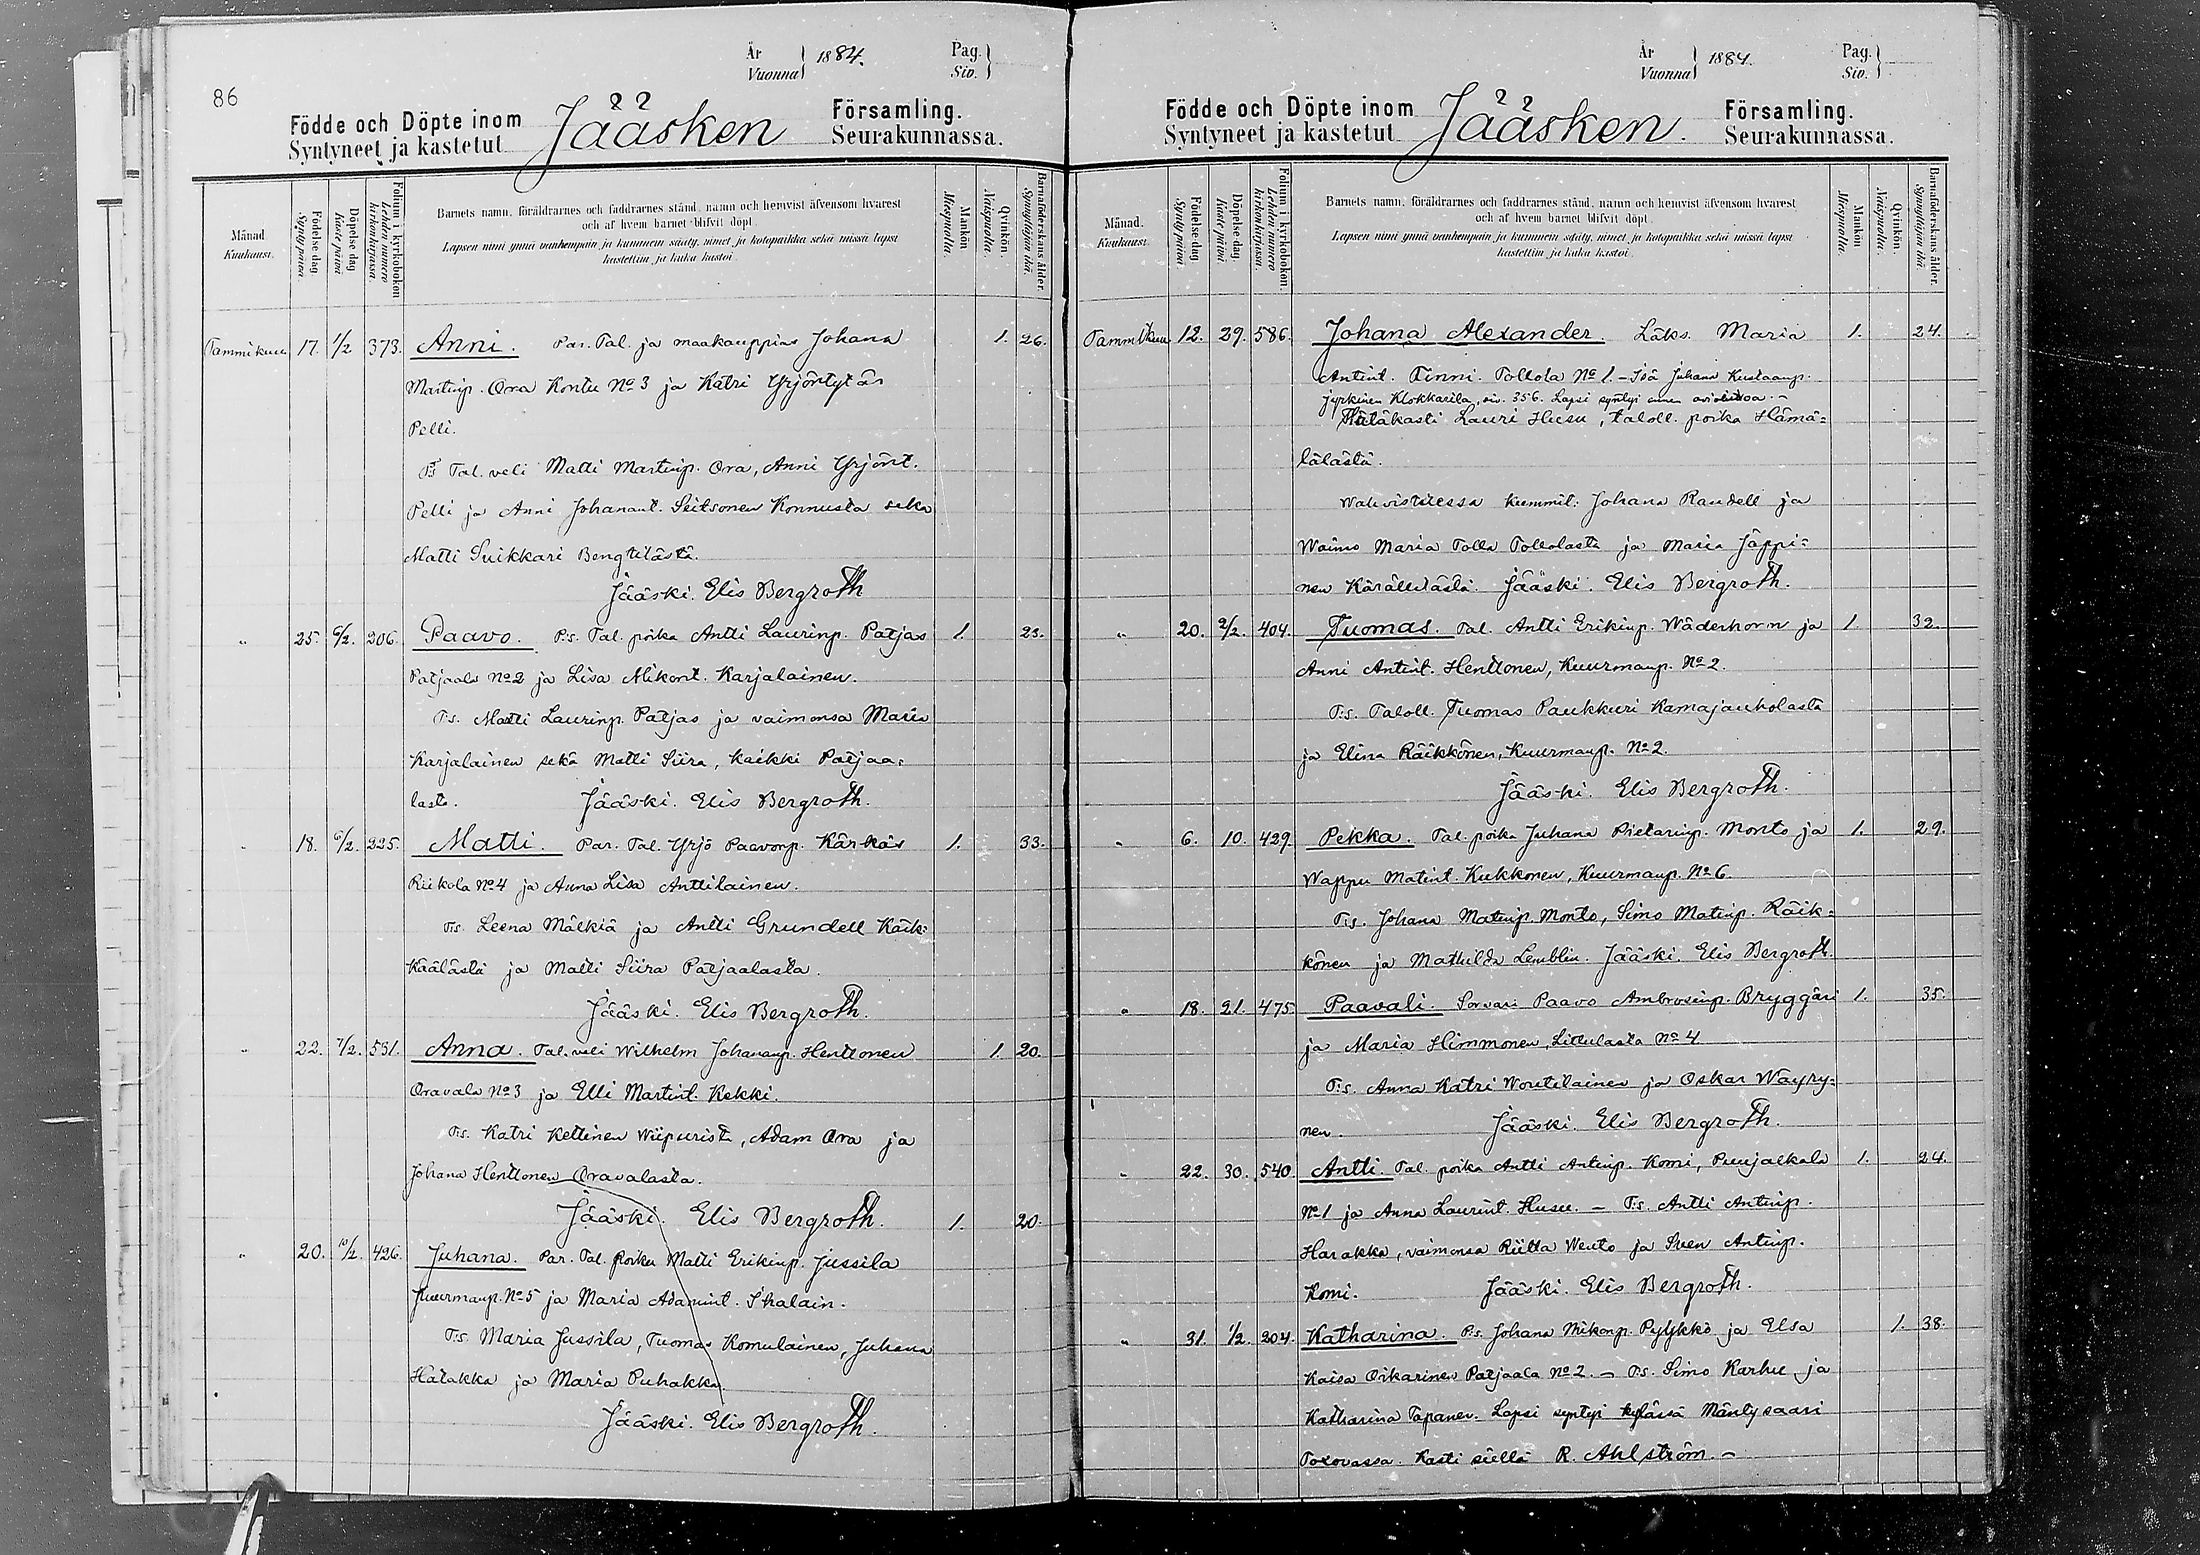 86
År Vuonna } 1884. Pag. Siv. }
Födde och Döpte inom Jääsken Församling.
Syntyneet ja kastetut Seurakunnassa.
Månad. Kuukausi.
Födelse dag Synty päivä.
Döpelse dag Kaste päivä.
Folium i kyrkobokon Lehden numero kirkonkirjassa.
Barnets namn, föräldrarnes och faddrarnes stånd, namn och hemvist äfvensom hvarest
och af hvem barnet blifvit döpt.
Lapsen nimi ynnä vanhempain ja kummein sääty, nimet ja kotopaikka sekä missä lapsi
kastettiin ja kuka kastoi.
Mankön. Miespuolta.
Qvinkön. Naispuolta.
Barnaföderskans ålder. Synnyttäjän ikä.
Tammikuu 17. 1/2 373. Anni. Par. Tal. ja maakauppias Johana 1. 26.
Martinp. Ora Kontu No 3 ja Katri Yrjöntytär
Pelli.
Ts Tal. veli Matti Martinp. Ora, Anni Yrjönt.
Pelli ja Anni Johanant. Seitsonen Konnusta seka
Matti Suikkari Bengtilästä.
Jääski. Elis Bergroth
" 25. 6/2. 206. Paavo. P:s. Tal. poika Antti Laurinp. Patjas 1. 23.
Patjaala No 2 ja Lisa Mikont. Karjalainen.
T:s. Matti Laurinp. Patjas ja vaimonsa Maria
Karjalainen sekä Matti Siira, kaikki Patjaa=
lasta. Jääski. Elis Bergroth.
" 18. 6/2. 225. Matti. Par. Tal. Yrjö Paavonp. Kärkäs 1. 33.
Riikola No 4 ja Anna Lisa Anttilainen.
T:s. Leena Mälkiä ja Antti Grundell Käik=
käälästä ja Matti Siira Patjaalasta.
Jääski. Elis Bergroth.
" 22. 7/2. 531. Anna. Tal. veli Wilhelm Johananp. Henttonen 1. 20.
Oravala No 3 ja Elli Martint. Kekki.
T:s. Katri Kettinen Wiipurista, Adam Ora ja
Johana Henttonen Oravalasta.
Jääski. Elis Bergroth. 1. 20.
" 20. 10/2. 426. Juhana. Par. Tal. poika Matti Erikinp. Jussila
Kuurmanp. No 5 ja Maria Adamint. Ihalain.
T:s. Maria Jussila, Tuomas Komulainen, Juhana
Hatakka ja Maria Puhakka.
Jääski. Elis Bergroth.
År Vuonna } 1884. Pag. Siv. }
Födde och Döpte inom Jääsken. Församling.
Syntyneet ja kastetut Seurakunnassa.
Månad. Kuukausi.
Födelse dag. Synty päivä.
Döpelse dag. Kaste päivä.
Folium i kyrkobokon. Lehden numero kirkonkirjassa.
Barnets namn, föräldrarnes och faddrarnes stånd, namn och hemvist äfvensom hvarest
och af hvem barnet blifvit döpt.
Lapsen nimi ynnä vanhempain ja kummein sääty, nimet ja kotopaikka sekä missä lapsi
kastettiin ja kuka kastoi.
Mankön. Miespuolta.
Qvinkön. Naispuolta.
Barnaföderskans ålder. Synnyttäjän ikä.
Tammikuu 12. 29. 586. Johana Alexander. Läks. Maria 1. 24.
Antint. Tinni. Tollola No 1. - Isä Juhana Kustaanp.
Jyrkinen Klokkarila, siv. 356. Lapsi syntyi ennen avioliittoa. -
Hätäkasti Lauri Husu, taloll. poika Hämä=
lälästä.
Wahvistuessa kummit: Johana Randell ja
Waimo Maria Tolla Tollolasta ja Maria Jäppi=
nen Kärällilästä. Jääski. Elis Bergroth.
" 20. 2/2. 404. Tuomas. Tal. Antti Erikinp. Wäderhorn ja 1. 32.
Anni Antint. Henttonen, Kuurmanp. No 2.
T:s. Taloll. Tuomas Paukkuri Kamajauholasta
ja Elina Räikkönen, Kuurmanp. No 2.
Jääski. Elis Bergroth.
" 6. 10. 429. Pekka. Tal. poika Juhana Pietarinp. Monto ja 1. 29.
Wappu Matint. Kukkonen, Kuurmanp. No 6.
T:s. Johana Matinp. Monto, Simo Matinp. Räik=
könen ja Mathilda Lemblin. Jääski. Elis Bergroth.
" 18. 21. 475. Paavali. Sorvari Paavo Ambrosinp. Bryggäri 1. 35.
ja Maria Himmonen, Littulasta No 4
T:s. Anna Katri Woutilainen ja Oskar Wäyry=
nen. Jääski. Elis Bergroth.
" 22. 30. 540. Antti. Tal. poika Antti Antinp. Komi, Puujalkala 1. 24.
No 1 ja Anna Laurint. Husu. - T:s. Antti Antinp.
Harakka, vaimonsa Riitta Wento ja Sven Antinp.
Komi. Jääski. Elis Bergroth.
" 31. 1/2. 204. Katharina. P:s. Johana Mikonp. Pylykkö ja Elsa 1. 38.
Kaisa Oikarinen Patjaala No 2. - T:s. Simo Karhu ja
Katharina Tapanen. Lapsi syntyi kylässä Mäntysaari
Kasti siellä R. Ahlström. -